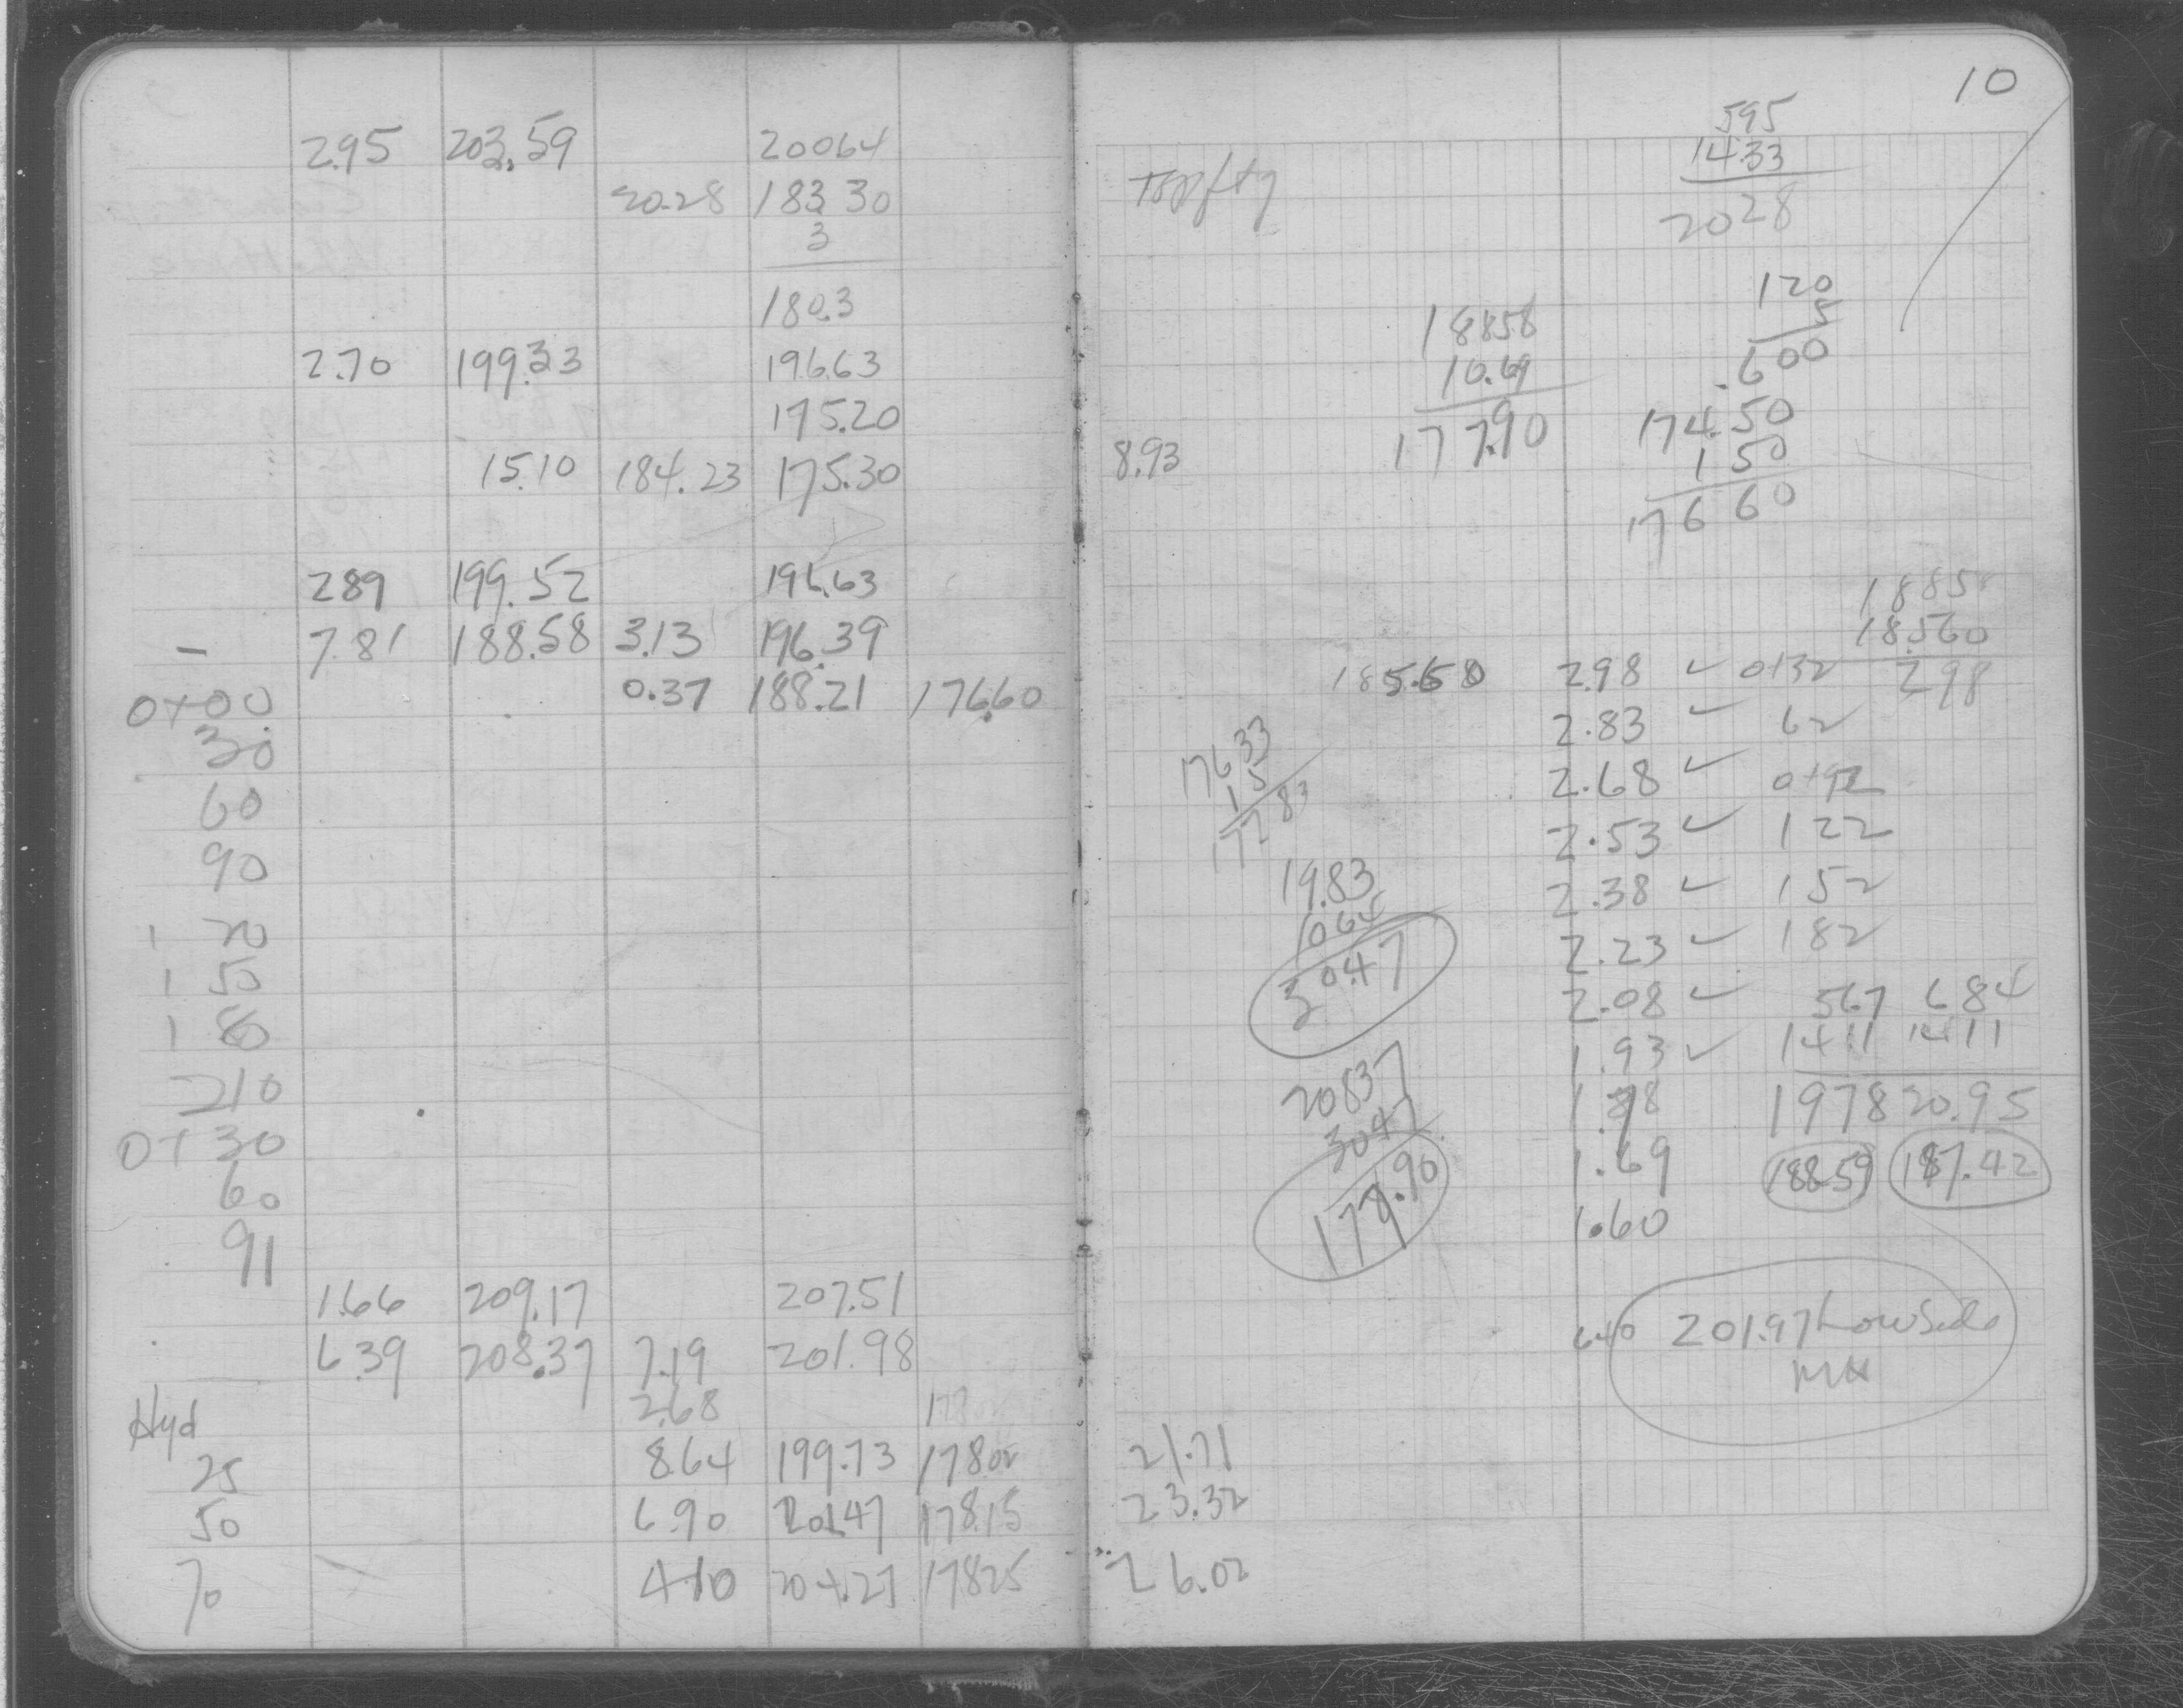 2.95 203.59 200.64
20.28 183.30
3
180.3
2.70 199.33 196.63
175.20
15.10 184.23 175.30
2.89 199.52 196.63
- 7.81 188.58 3.13 196.39
0+00 0.37 188.21 176.60
30
60
90
1 20
1 50
1 80
210
0+30
60
91
1.66 209.17 207.51
6.39 208.37 7.19 201.98
Hyd 2.68
25 8.64 199.73 178.02
50 6.90 201.47 178.15
70 4.10 204.27 178.25
10
595
14.33
2028
Top ftg
120
5
.600
188.58
10.69
177.90
174.50
1 50
176 60
8.93
1885
185.60
298
185.60 2.98 ✓ 0+32
2.83 ✓ 62
2.68 ✓ 0+92
2.53 ✓ 122
2.38 ✓ 152
2.23 ✓ 182
2.08 ✓
1.93 ✓
1.78
1.69
1.60
176 33
1 5
177 83
19.83
10.64
30.47
208 37
30 47
177.90
567 684
14 11 14 11
1978 20.95
188.59 187.42
640 201.97 Low Side
MH
21.71
23.32
26.02